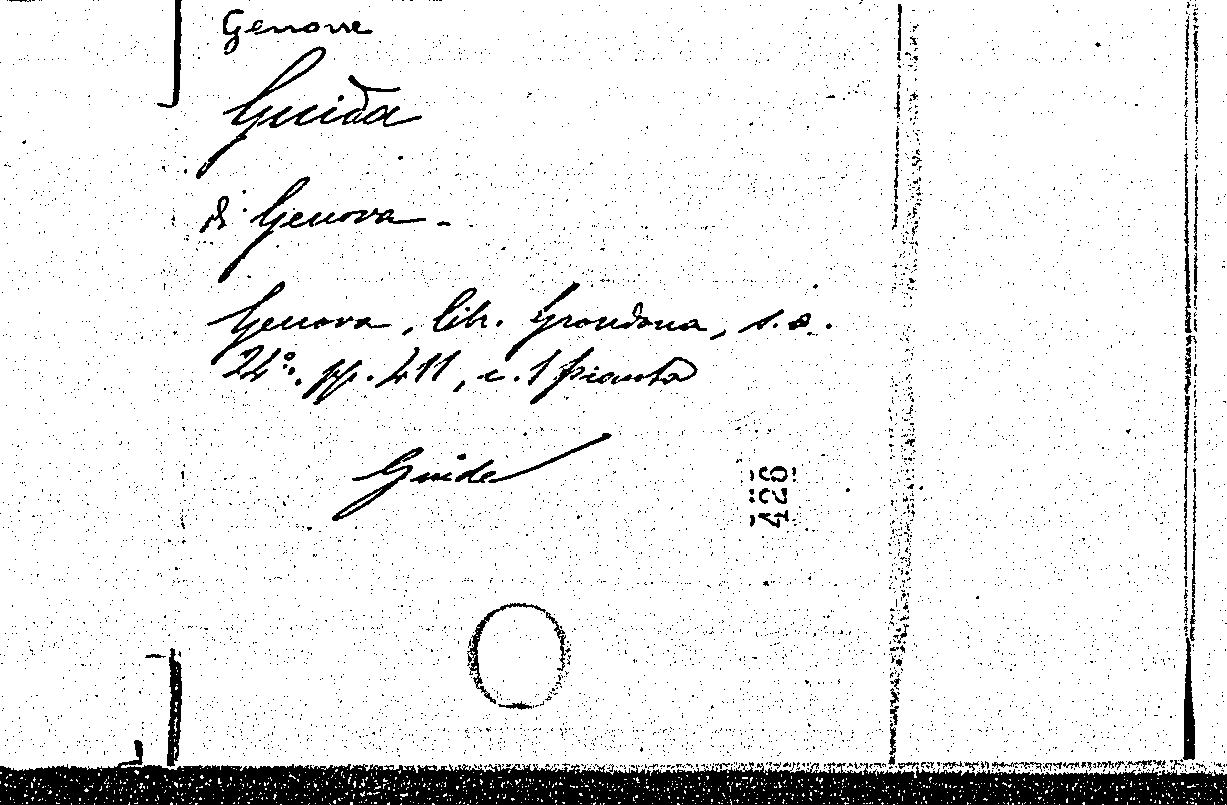 Genova
Guida
di Genova -
Genova, libr. Grondona, s.a.
24°. pp. 411, c. 1 pianta
Guide
426